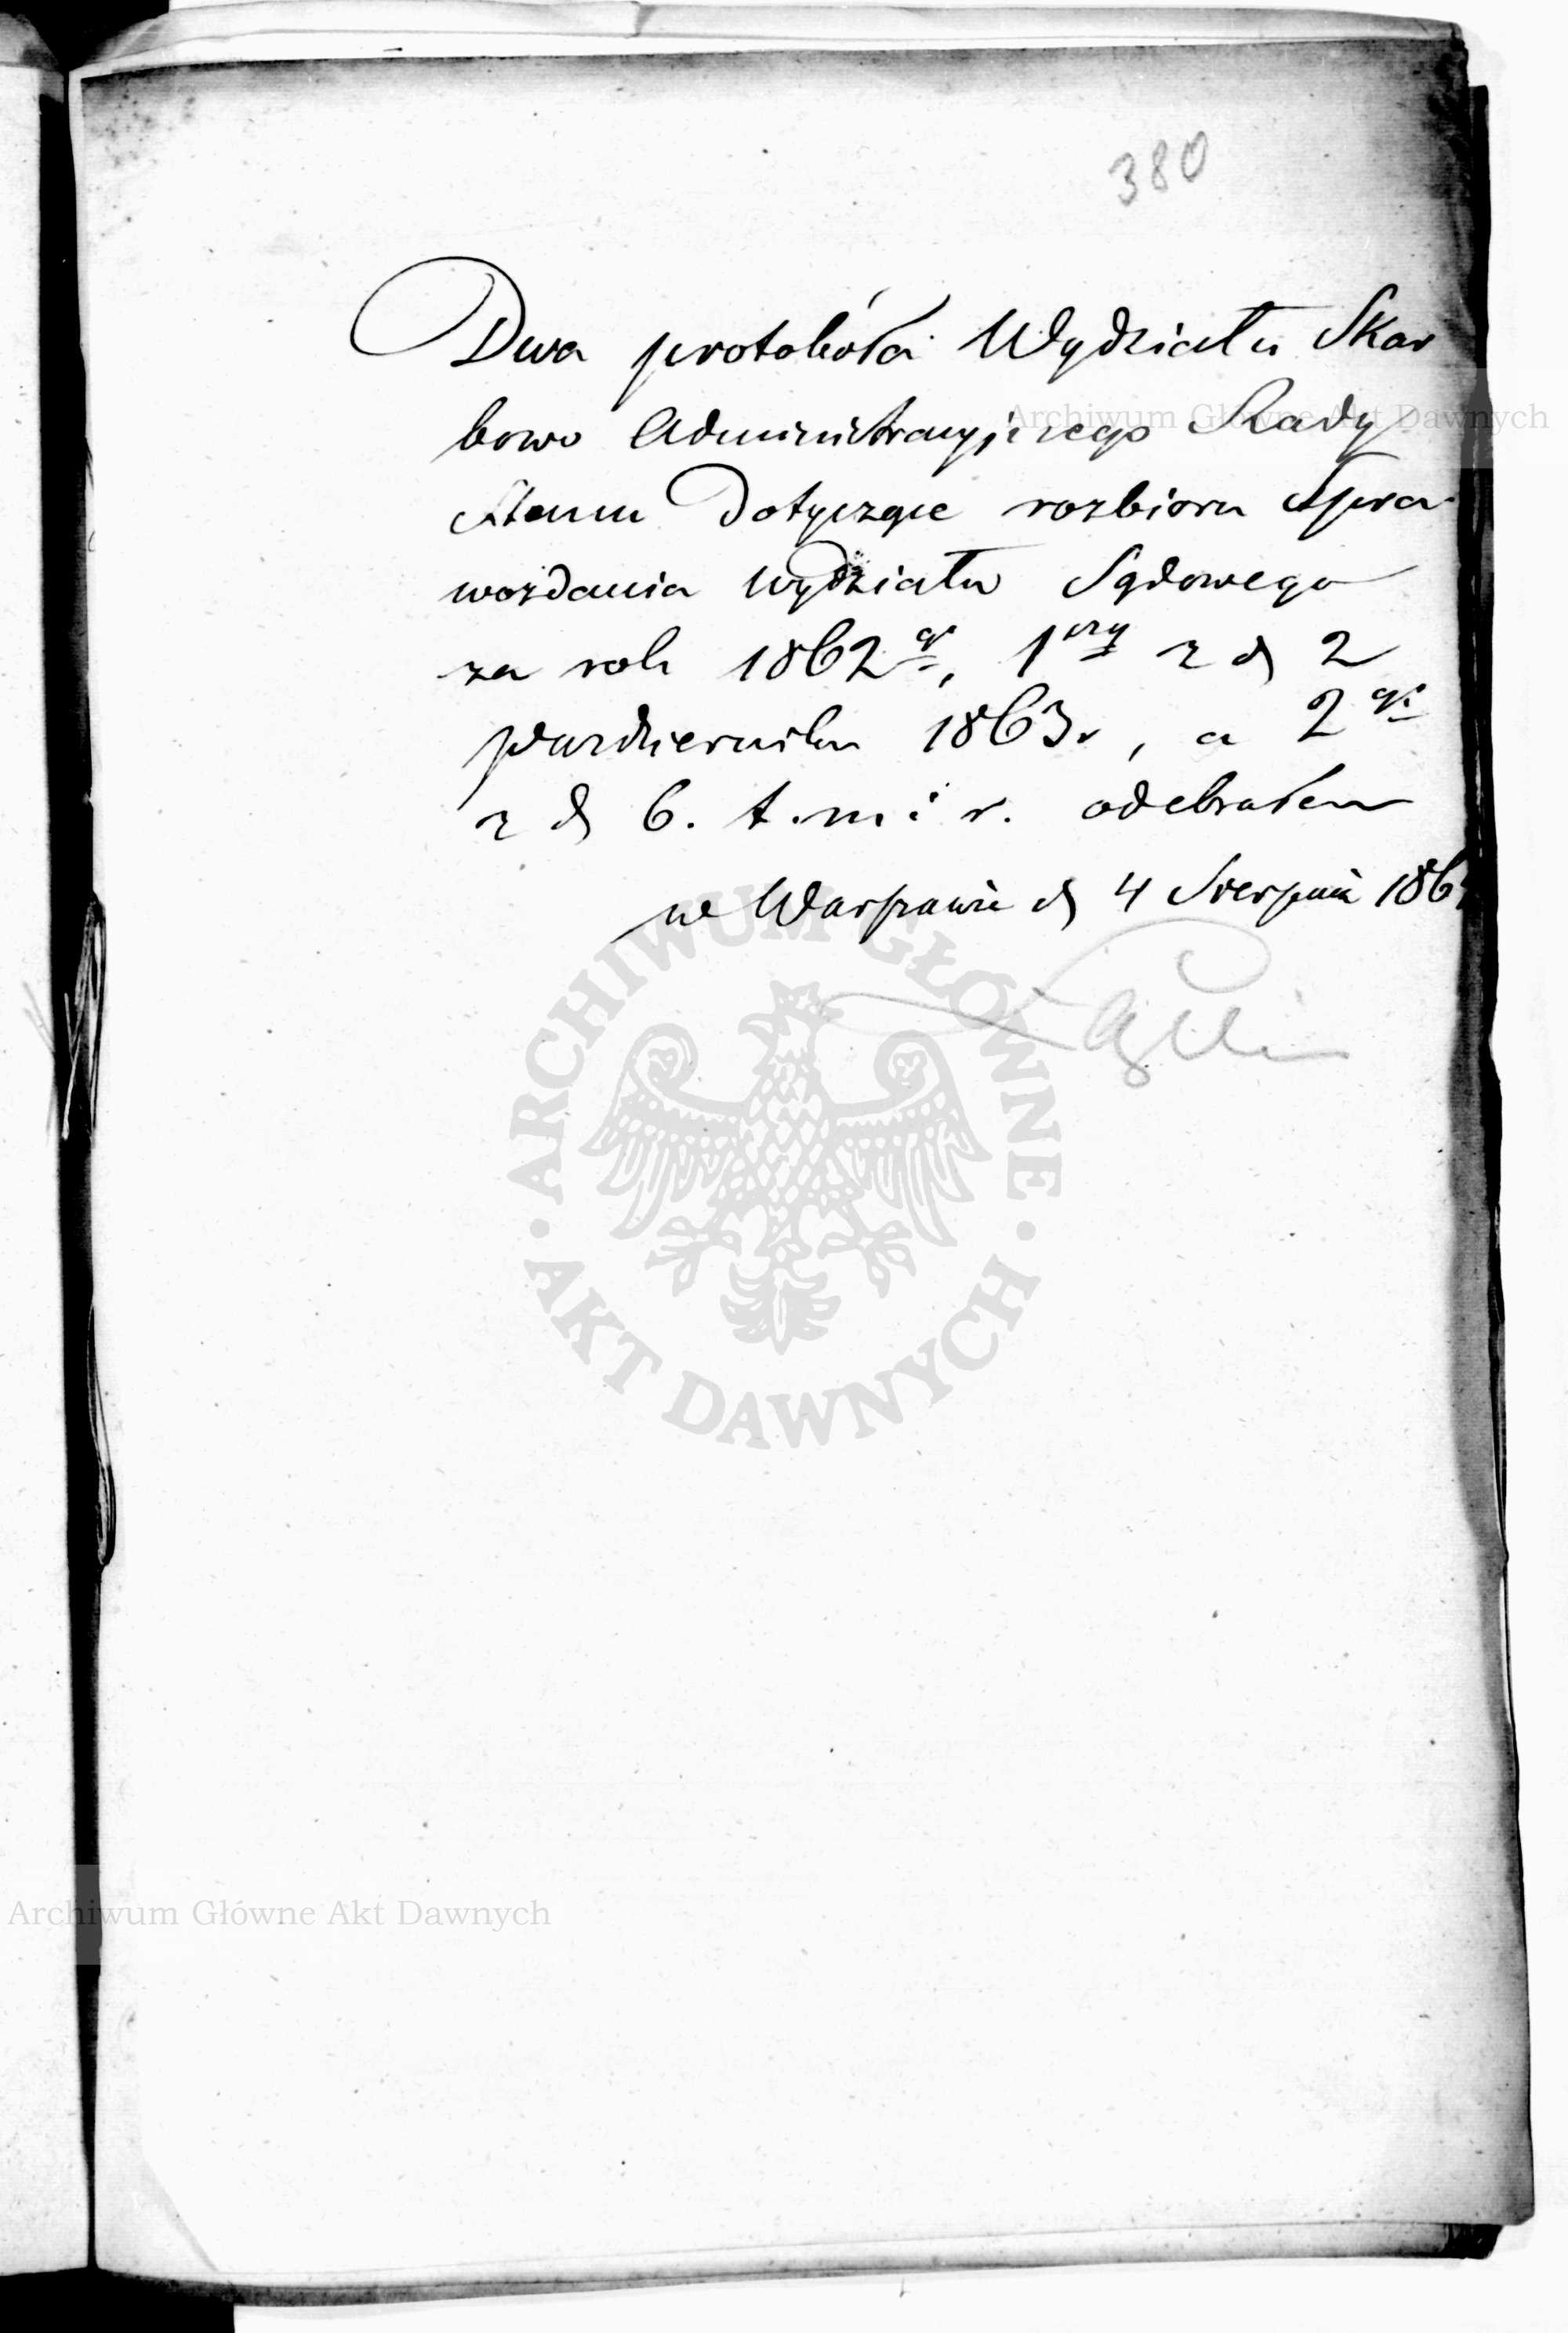 380
Dwa protokóła Wydziału Skar
bowo Administracyjnego Rady
Stanu Dotyczące rozbioru Spra-
wozdania Wydziału Sądowego
za rok 1862 go, 1 wszy z d 2
Października 1863 r, a 2 gi
z d 6. t. m. i r. odebrałem
w Warszawie d 4 Sierpnia 186
Archiwum Główne Akt Dawnych
ARCHIWUM GŁÓWNE
AKT DAWNYCH
Archiwum Główne Akt Dawnych